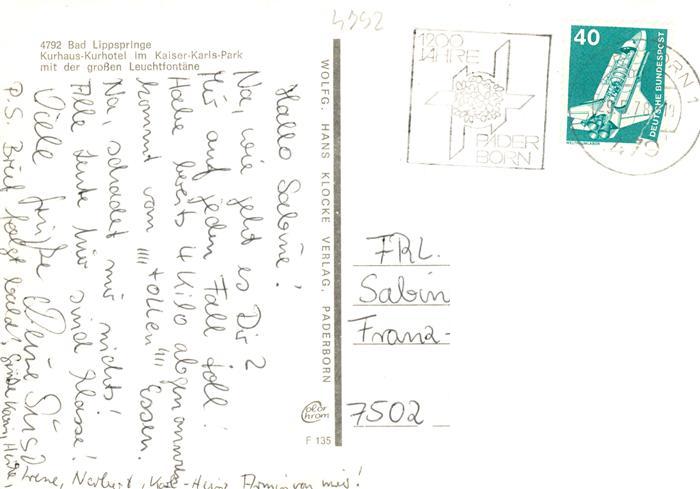 4792
4792 Bad Lippspringe
Kurhaus-Kurhotel im Kaiser-Karls-Park
mit der großen Leuchtfontäne
Hallo Sabine!
Na, wie geht es Dir?
Mir auf jeden Fall toll!
Habe bereits 4 Kilo abgenommen
kommt vom "" tollen "" Essen.
Na, schadet mir nichts!
Alle Leute hier sind klasse!
Viele Grüße Deine
P.S. Brief folgt bald! Grüße Karin, Heike,
Irene, Norbert, Karl-Heinz Armin von mir!
WOLFG. HANS KLOCKE VERLAG, PADERBORN
Color chrom
F 135
1200
JAHRE
PADER
BORN
40
DEUTSCHE BUNDESPOST
WELTRAUMLABOR
FRL.
Sabin
Franz-
7502